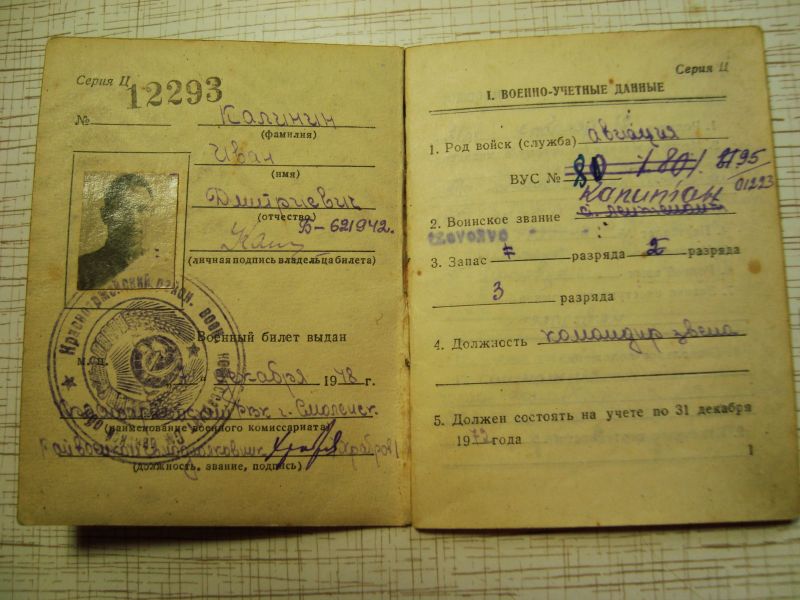 Серия Ц
12293
№ Калинин
(фамилия)
Иван
(имя)
Дмитриевич
(отчество)
Б-621942.
(личная подпись владельца билета)
Военный билет выдан
м.п.
декабря 1948 г.
г. Смоленск
(наименование военного комиссариата)
Храбров
(должность, звание, подпись)
Серия Ц
I. ВОЕННО-УЧЕТНЫЕ ДАННЫЕ
1. Род войск (служба) авиация
ВУС № 80
95
01223
капитан
2. Воинское звание
3. Запас разряда 2 разряда
3 разряда
4. Должность командир звена
5. Должен состоять на учете по 31 декабря
19 года
1